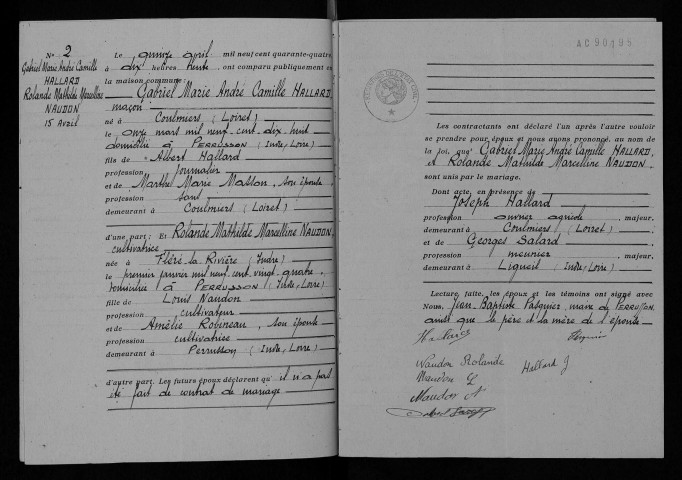 N° 2
Gabriel Marie André Camille
HALLARD
Rolande Mathilde Marcelline
NAUDON
15 Avril
Le quinze avril mil neuf cent quarante-quatre
à dix heures trente, ont comparu publiquement en
la maison commune:
Gabriel Marie André Camille HALLARD
maçon
né à Coulmiers (Loiret)
le onze mars mil neuf cent dix huit
domicilié à PERRUSSON (Indre, Loire)
fils de Albert Hallard
profession Journalier
et de Marthe Marie Masson, son épouse
profession sans
demeurant à Coulmiers (Loiret)
d'une part: Et Rolande Mathilde Marcelline NAUDON,
cultivatrice
née à Fléré-la-Rivière (Indre)
le premier janvier mil neuf cent vingt quatre,
domiciliée à PERRUSSON (Indre, Loire)
fille de Louis Naudon
profession cultivateur
et de Amélie Robineau, son épouse
profession cultivatrice
demeurant à Perrusson (Indre, Loire)
d'autre part. Les futurs époux déclarent qu'il n'a pas
été fait de contrat de mariage
AC90195
Les contractants ont déclaré l'un après l'autre vouloir
se prendre pour époux et nous avons prononcé, au nom de
la loi, que Gabriel Marie André Camille HALLARD,
et Rolande Mathilde Marcelline NAUDON,
sont unis par le mariage.
Dont acte, en présence de
Joseph Hallard
profession ouvrier agricole, majeur.
demeurant à Coulmiers (Loiret)
et de Georges Salard
profession meunier, majeur.
demeurant à Ligueil (Indre, Loire)
Lecture faite, les époux et les témoins ont signé avec
Nous, Jean-Baptiste Pasquier, maire de PERRUSSON,
ainsi que le père et la mère de l'épouse
Hallard
Naudon Rolande
Hallard J
Naudon L
Naudon A